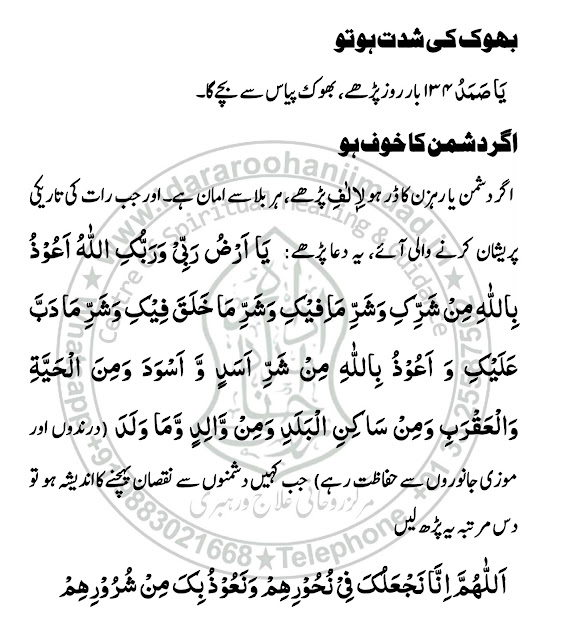 بھوک کی شدت ہو تو
یَا صَمَدُ ۱۳۴ بار روز پڑھے، بھوک پیاس سے بچے گا۔
اگر دشمن کا خوف ہو
اگر دشمن یا رہزن کا ڈر ہو لِاِلٰفِ پڑھے، ہر بلا سے امان ہے۔ اور جب رات کی تاریکی
پریشان کرنے والی آئے، یہ دعا پڑھے: یَا اَرْضُ رَبِّیْ وَرَبُّکِ اللّٰهُ اَعُوْذُ
بِاللّٰهِ مِنْ شَرِّکِ وَشَرِّ مَا فِیْکِ وَشَرِّ مَا خَلَقَ فِیْکِ وَشَرِّ مَا دَبَّ
عَلَیْکِ وَ اَعُوْذُ بِاللّٰهِ مِنْ شَرِّ اَسَدٍ وَّ اَسْوَدَ وَمِنَ الْحَیَّةِ
وَالْعَقْرَبِ وَمِنْ سَاکِنِ الْبَلَدِ وَمِنْ وَّالِدٍ وَّمَا وَلَدَ (درندوں اور
موزی جانوروں سے حفاظت رہے) جب کہیں دشمنوں سے نقصان پہنچنے کا اندیشہ ہو تو
دس مرتبہ یہ پڑھ لیں
اَللّٰهُمَّ اِنَّا نَجْعَلُکَ فِیْ نُحُوْرِهِمْ وَنَعُوْذُ بِکَ مِنْ شُرُوْرِهِمْ
www.idararoohaniimdad.in
Centre of Spiritual Healing & Guidance
مرکز روحانی علاج و رہبری
Telephone